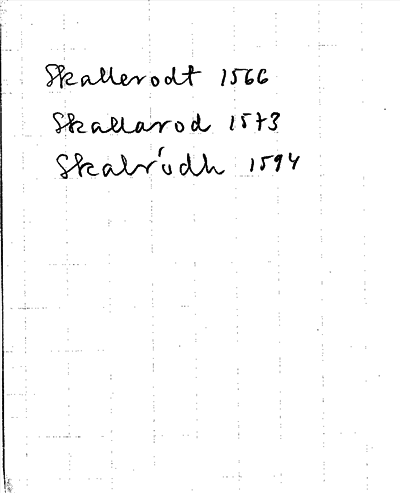 Skallerodt 1566
Skallarod 1573
Skalrödh 1594